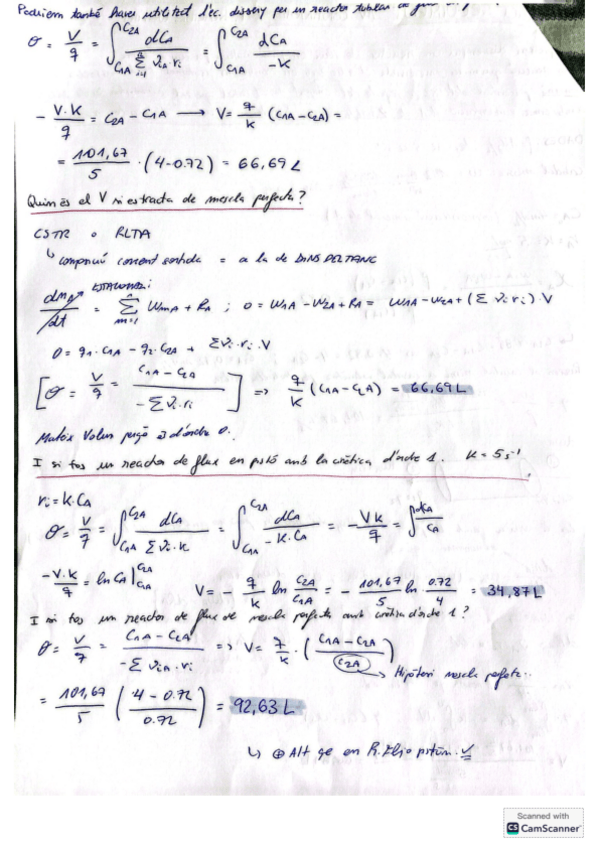 Podríem també haver utilitzat l'ec. disseny per un reactor tubular
σ = V/q = ∫_{C1A}^{C2A} dCA / Σ νiA·ri = ∫_{C1A}^{C2A} dCA / -K
- V·K/q = C2A - C1A → V = q/K (C1A - C2A) =
= 101,67/5 · (4-0.72) = 66,69 L
Quin és el V si es tracta de mescla perfecta?
CSTR o RLTA
↳ composició corrent sortida = a la de DINS DEL TANC
ESTACIONARI:
dmA/dt = Σ_{m=1} WmA + RA ; 0 = W1A - W2A + RA = W1A - W2A + (Σ νi ri)·V
0 = q1·C1A - q2·C2A + Σνi·ri·V
[σ = V/q = C1A - C2A / -Σνi·ri] ⇒ q/K (C1A - C2A) = 66,69 L
Mateix Volum perquè és d'ordre 0.
I si fos un reactor de flux en pistó amb la cinètica d'ordre 1. K = 5 s⁻¹
ri = K·CA
σ = V/q = ∫_{C1A}^{C2A} dCA / Σνi·ri = ∫_{C1A}^{C2A} dCA / -K·CA = - VK/q = ∫ dCA / CA
-V·K/q = ln CA |_{C1A}^{C2A} V = - q/K ln C2A/C1A = - 101,67/5 ln 0.72/4 = 34,87 L
I si fos un reactor de flux de mescla perfecta amb cinètica d'ordre 1?
σ = V/q = C1A - C2A / -Σ νiA·ri ⇒ V = q/K · (C1A - C2A / C2A)
→ Hipòtesi mescla perfecte..
= 101,67/5 (4 - 0.72 / 0.72) = 92,63 L
↳ ⊕ Alt que en R. flujo pistón. ✓
Scanned with
CS CamScanner